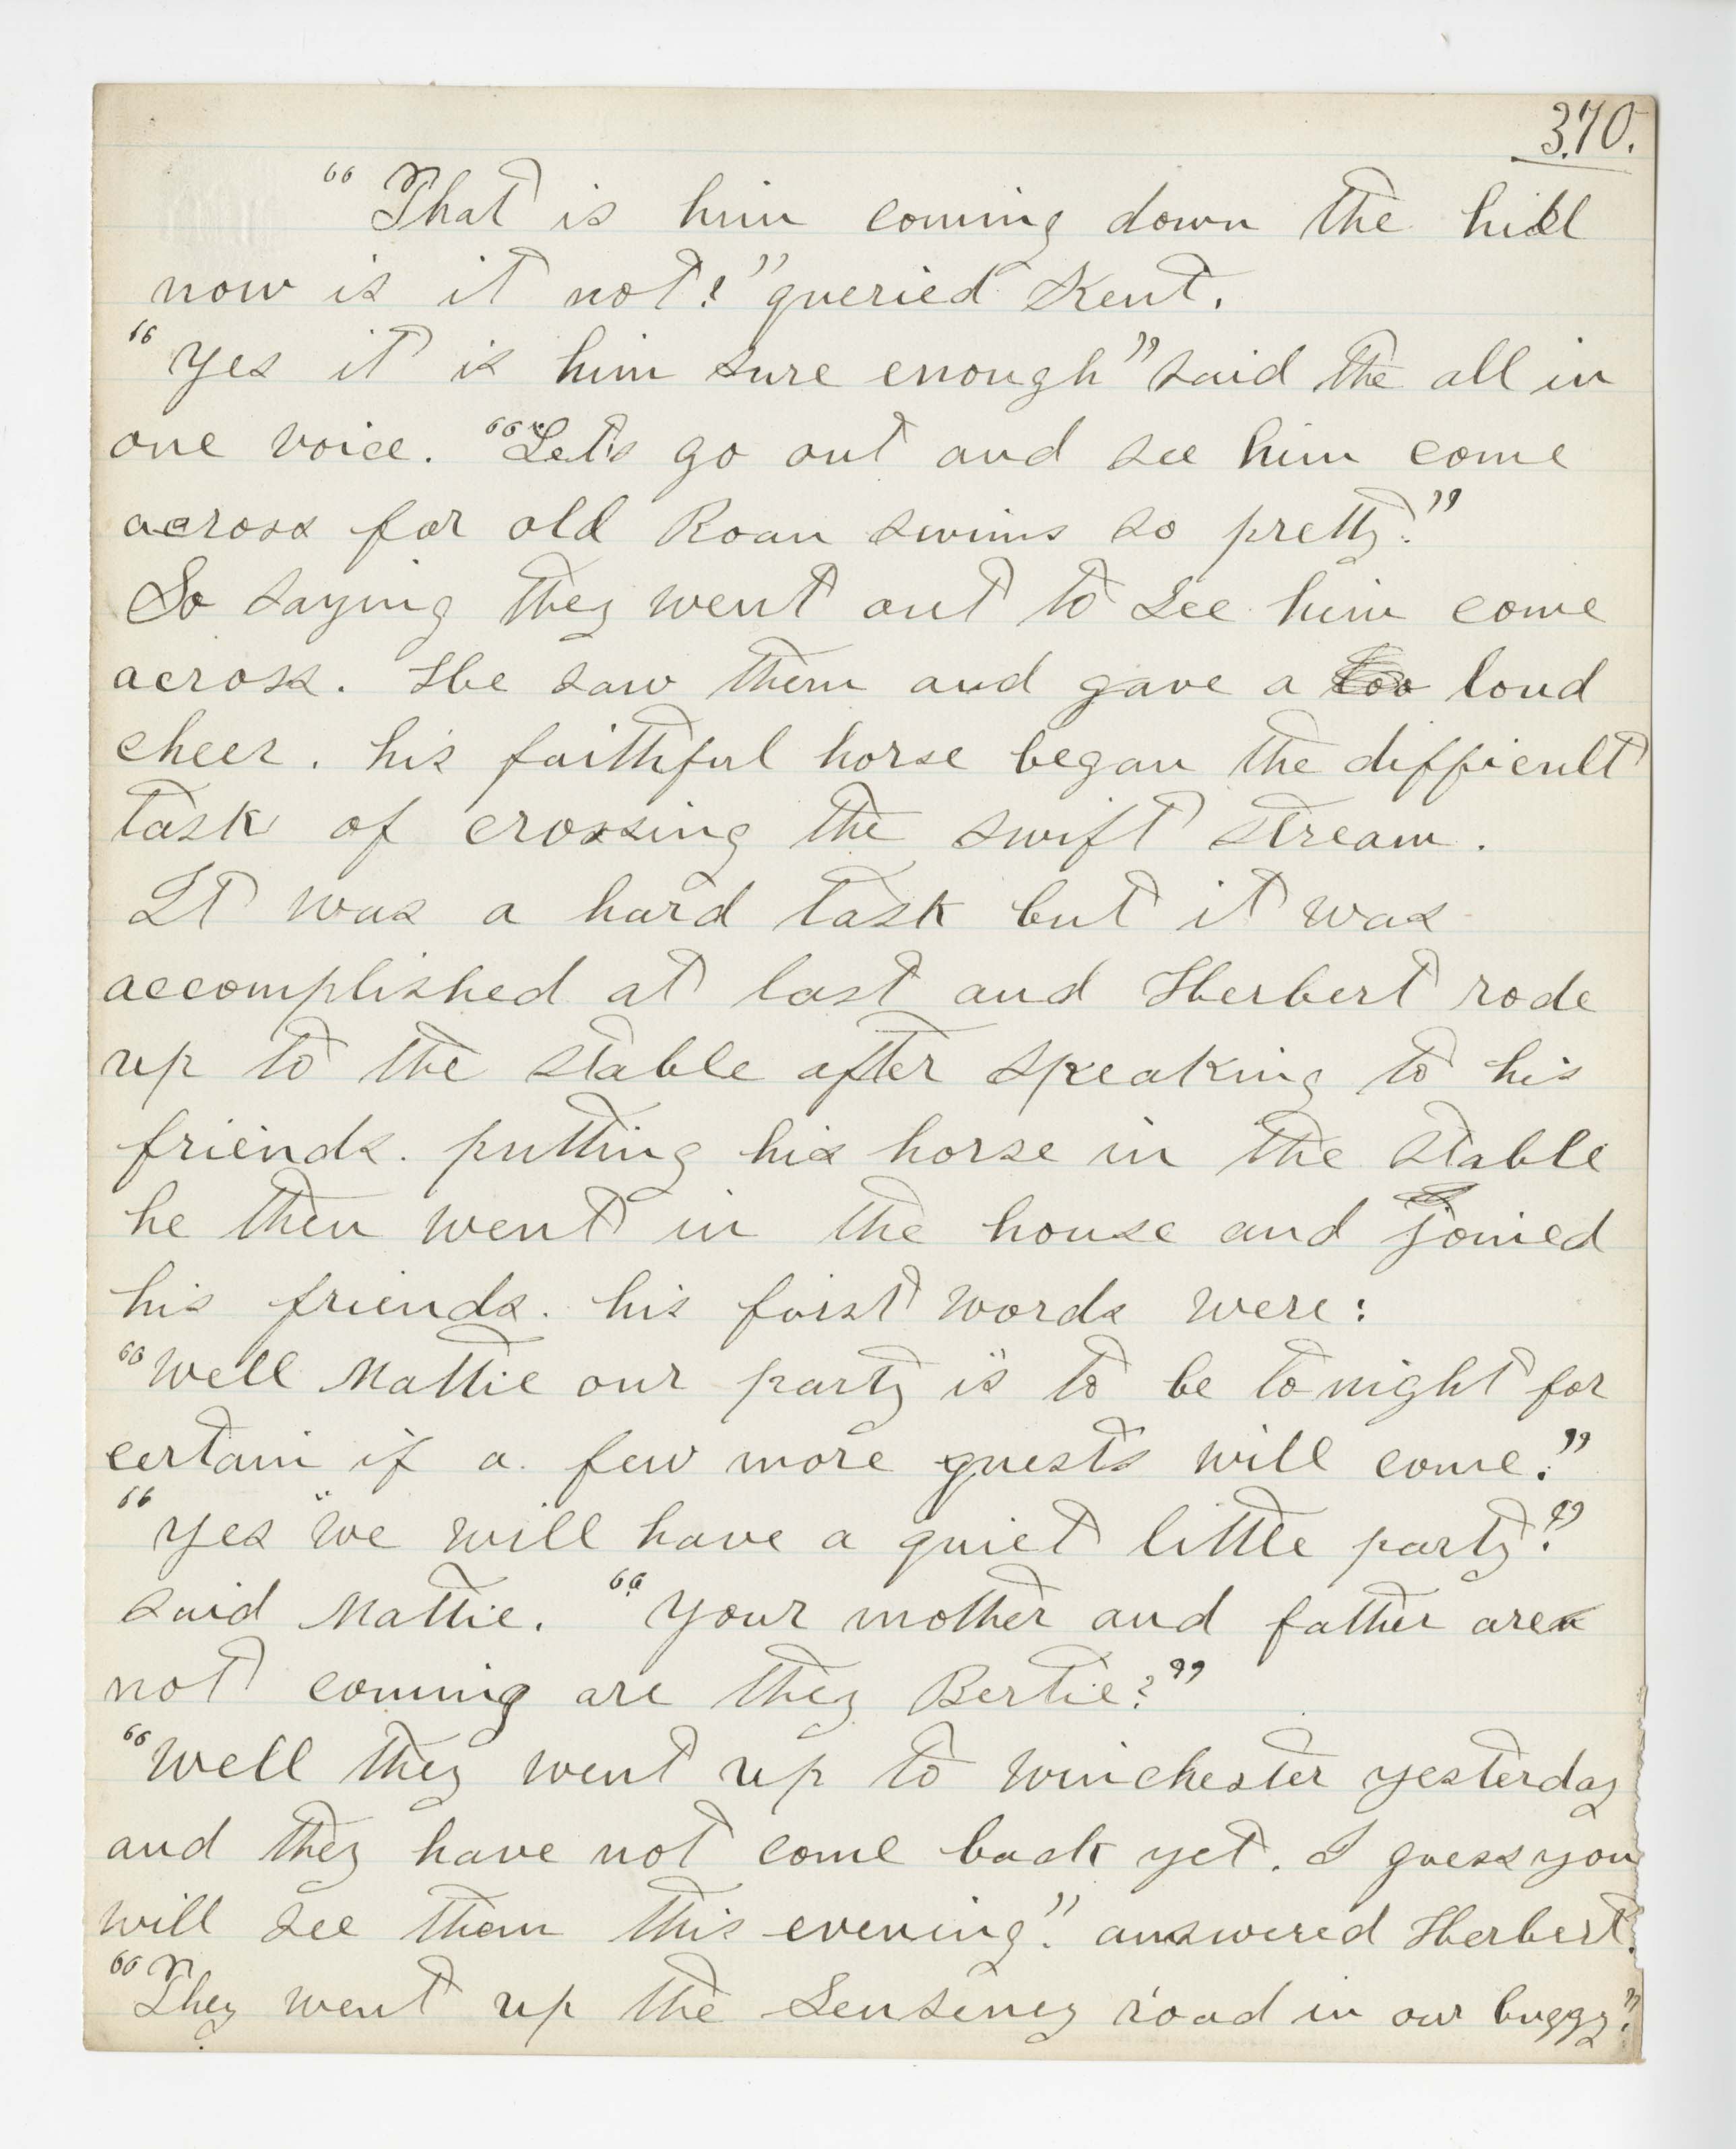 370.
"That is him coming down the hill
now is it not?" queried Kent.
"Yes it is him sure enough" said the all in
one voice. "Let's go out and see him come
across for old Roan swims so pretty."
So saying they went out to see him come
across. He saw them and gave a loud
cheer. his faithful horse began the difficult
task of crossing the swift stream.
It was a hard task but it was
accomplished at last and Herbert rode
up to the stable after speaking to his
friends. putting his horse in the stable
he then went in the house and joined
his friends. his foirst words were:
"Well Mattie our party is to be to night for
certain if a few more guests will come."
"Yes we will have a quiet little party."
said Mattie. "Your mother and father are
not coming are they Bertie?"
"Well they went up to Winchester yesterday
and they have not come back yet. I guess you
will see them this evening." answered Herbert.
"They went up the Senseney road in our buggy."